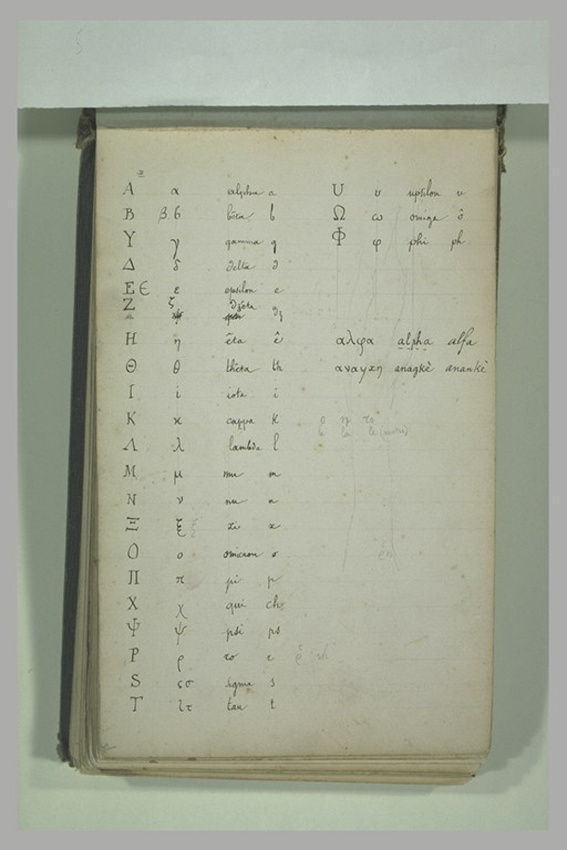 A α alpha a
B β.ϐ bêta b
Υ γ gamma g
Δ δ delta d
E Є ε epsilon e
Z ζ dzêta dz
H η êta ê
Θ θ thêta th
I i iota i
K κ cappa K
Λ λ lambda l
M μ mu m
N ν nu n
Ξ ξ xi x
O o omicron o
Π π pi p
X χ qui ch
Ψ ψ psi ps
P ρ ro
S ςσ sigma s
T τ tau t
U υ upsilon u
Ω ω omega ô
Φ φ phi ph
αλφα alpha alfa
αναγκη anagkè anankè
o η το
le la le (neutre)